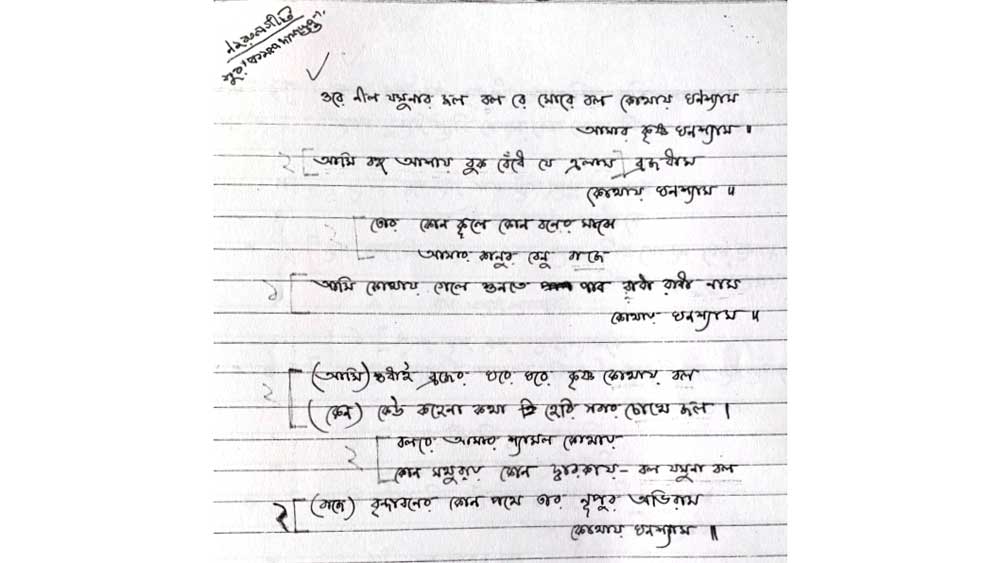 নজরুলগীতি
সুর: কমল দাশগুপ্ত
ওরে নীল যমুনার জল বল রে মোরে বল কোথায় ঘনশ্যাম
আমার কৃষ্ণ ঘনশ্যাম ॥
২ [আমি বহু আশায় বুক বেঁধে যে এলাম] ব্রজধাম
কোথায় ঘনশ্যাম ॥
২ [তোর কোন কূলে কোন বনের মাঝে
আমার কানুর বেনু বাজে
২ [আমি কোথায় গেলে শুনতে পাব রাধা রাধা নাম
কোথায় ঘনশ্যাম ॥
২ [(আমি) শুধাই ব্রজের ঘরে ঘরে কৃষ্ণ কোথায় বল
(কেন) কেউ কহেনা কথা হেরি সবার চোখে জল ।
২ [বলরে আমার শ্যামল কোথায়
কোন মথুরায় কোন দ্বারকায় - বল যমুনা বল
২ [(বাজে) বৃন্দাবনের কোন পথে তার নূপুর অভিরাম
কোথায় ঘনশ্যাম ॥